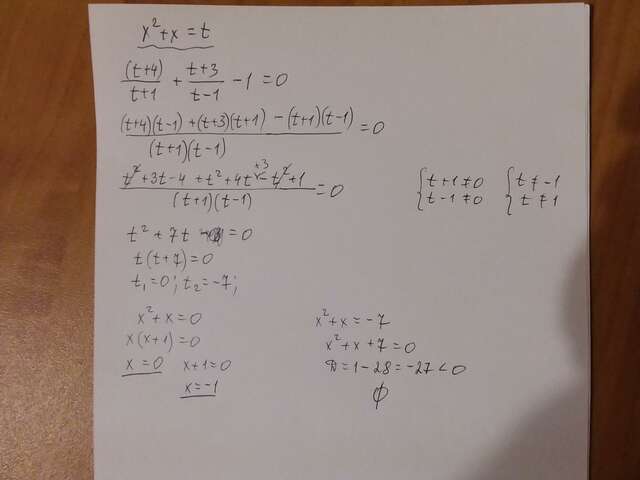 x² + x = t
(t+4)/(t+1) + (t+3)/(t-1) - 1 = 0
((t+4)(t-1) + (t+3)(t+1) - (t+1)(t-1))/((t+1)(t-1)) = 0
(t² + 3t - 4 + t² + 4t + 3 - t² + 1)/((t+1)(t-1)) = 0
{ t+1 ≠ 0 { t ≠ -1
{ t-1 ≠ 0 { t ≠ 1
t² + 7t = 0
t(t+7) = 0
t₁ = 0; t₂ = -7;
x² + x = 0
x(x+1) = 0
x = 0 x+1 = 0
x = -1
x² + x = -7
x² + x + 7 = 0
D = 1 - 28 = -27 < 0
∅